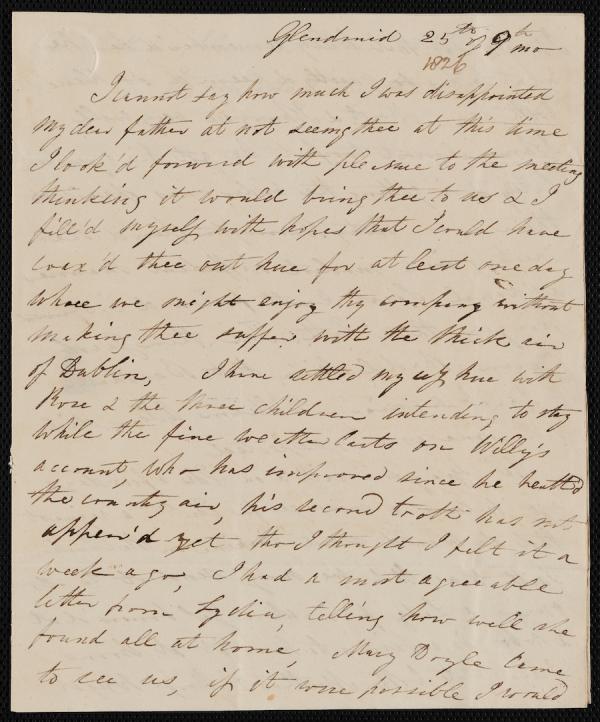 Glendruid 25th of 9th mo
1826
I cannot say how much I was disappointed
my dear father at not seeing thee at this time
I look'd forward with pleasure to the meeting
thinking it would bring thee to us & I
fill'd myself with hopes that I could have
coax'd thee out here for at least one day
where we might enjoy thy company without
making thee suffer with the thick air
of Dublin, I have settled myself here with
Rose & the three children intending to stay
while the fine weather lasts on Willy's
account, who has improved since he breathed
the country air, his second tooth has not
appear'd yet tho I thought I felt it a
week ago, I had a most agreeable
letter from Lydia, telling how well she
found all at home, Mary Doyle came
to see us, if it were possible I would